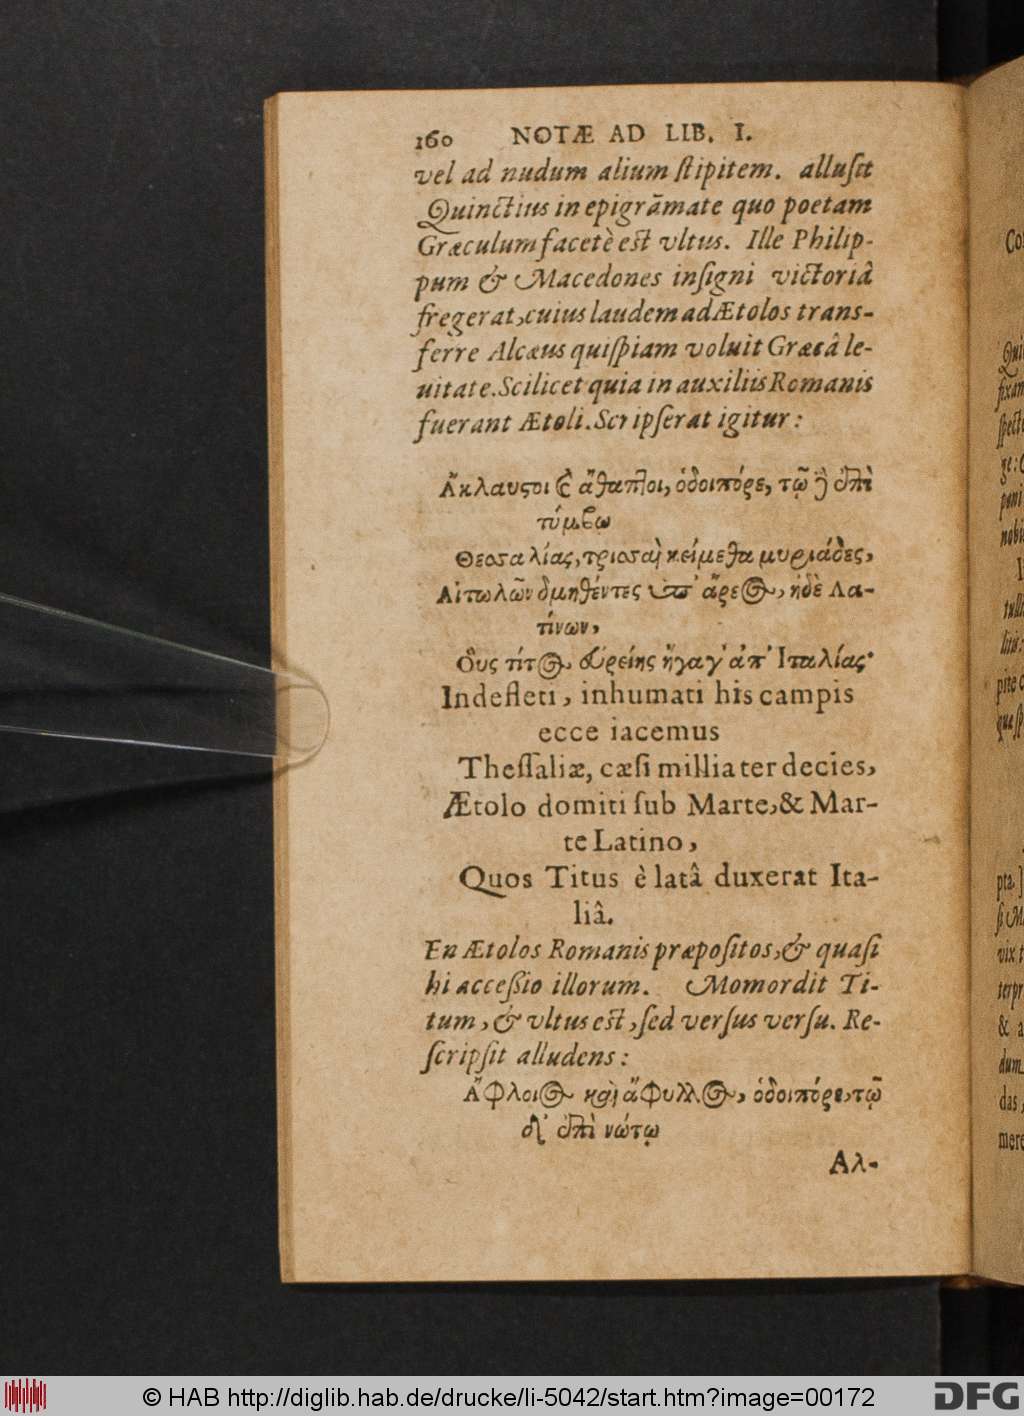 160 NOTÆ AD LIB. I.
vel ad nudum alium ſtipitem. alluſit
Quinctius in epigrāmate quo poetam
Græculum facetè eſt vltus. Ille Philip-
pum & Macedones inſigni victoriâ
fregerat, cuius laudem ad Ætolos trans-
ferre Alcæus quiſpiam voluit Græcâ le-
uitate. Scilicet quia in auxiliis Romanis
fuerant Ætoli. Scripſerat igitur:
Ἄκλαυςοι καὶ ἄθαπτοι, ὁδοιπόρε, τῷ δ' ἐπὶ
τύμβῳ
Θεσσαλίας, τρισσαὶ κείμεθα μυριάδες,
Αἰτωλῶν δμηθέντες ὑπ' ἄρεος, ἠδὲ Λα-
τίνων,
Οὓς τίτος εὐρείης ἤγαγ' ἀπ' Ἰταλίας·
Indefleti, inhumati his campis
ecce iacemus
Theſſaliæ, cæſi millia ter decies,
Ætolo domiti ſub Marte, & Mar-
te Latino,
Quos Titus è latâ duxerat Ita-
liâ.
En Ætolos Romanis præpoſitos, & quaſi
hi acceßio illorum. Momordit Ti-
tum, & vltus eſt, ſed verſus verſu. Re-
ſcripſit alludens:
Ἄφλοιος καὶ ἄφυλλος, ὁδοιπόρε, τῷ
δ' ἐπὶ νώτῳ
Αλ-
© HAB http://diglib.hab.de/drucke/li-5042/start.htm?image=00172
DFG